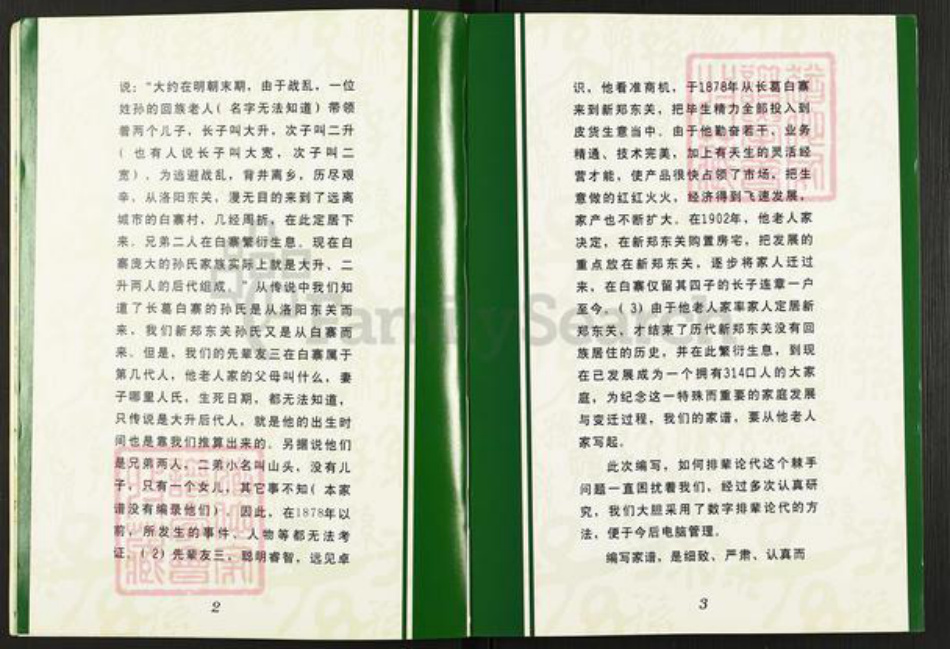 说：“大约在明朝末期，由于战乱，一位
姓孙的回族老人（名字无法知道）带领
着两个儿子，长子叫大升，次子叫二升
（也有人说长子叫大宽，次子叫二
宽），为逃避战乱，背井离乡，历尽艰
辛，从洛阳东关，漫无目的来到了远离
城市的白寨村，几经周折，在此定居下
来。兄弟二人在白寨繁衍生息。现在白
寨庞大的孙氏家族实际上就是大升、二
升两人的后代组成。”从传说中我们知
道了长葛白寨的孙氏是从洛阳东关而
来，我们新郑东关孙氏又是从白寨而
来。但是，我们的先辈友三在白寨属于
第几代人，他老人家的父母叫什么，妻
子哪里人氏，生死日期，都无法知道，
只传说是大升后代人，就是他的出生时
间也是靠我们推算出来的。另据说他们
是兄弟两人，二弟小名叫山头，没有儿
子，只有一个女儿，其它事不知（本家
谱没有编录他们）。因此，在1878年以
前，所发生的事件、人物等都无法考
证。（2）先辈友三，聪明睿智，远见卓
2
识，他看准商机，于1878年从长葛白寨
来到新郑东关，把毕生精力全部投入到
皮货生意当中。由于他勤奋若干，业务
精通、技术完美，加上有天生的灵活经
营才能，使产品很快占领了市场，把生
意做的红红火火，经济得到飞速发展，
家产也不断扩大。在1902年，他老人家
决定，在新郑东关购置房宅，把发展的
重点放在新郑东关，逐步将家人迁过
来，在白寨仅留其四子的长子连章一户
至今。（3）由于他老人家率家人定居新
郑东关，才结束了历代新郑东关没有回
族居住的历史，并在此繁衍生息，到现
在已发展成为一个拥有314口人的大家
庭，为纪念这一特殊而重要的家庭发展
与变迁过程，我们的家谱，要从他老人
家写起。
此次编写，如何排辈论代这个棘手
问题一直困扰着我们，经过多次认真研
究，我们大胆采用了数字排辈论代的方
法，便于今后电脑管理。
编写家谱，是细致、严肃、认真而
3
FamilySearch